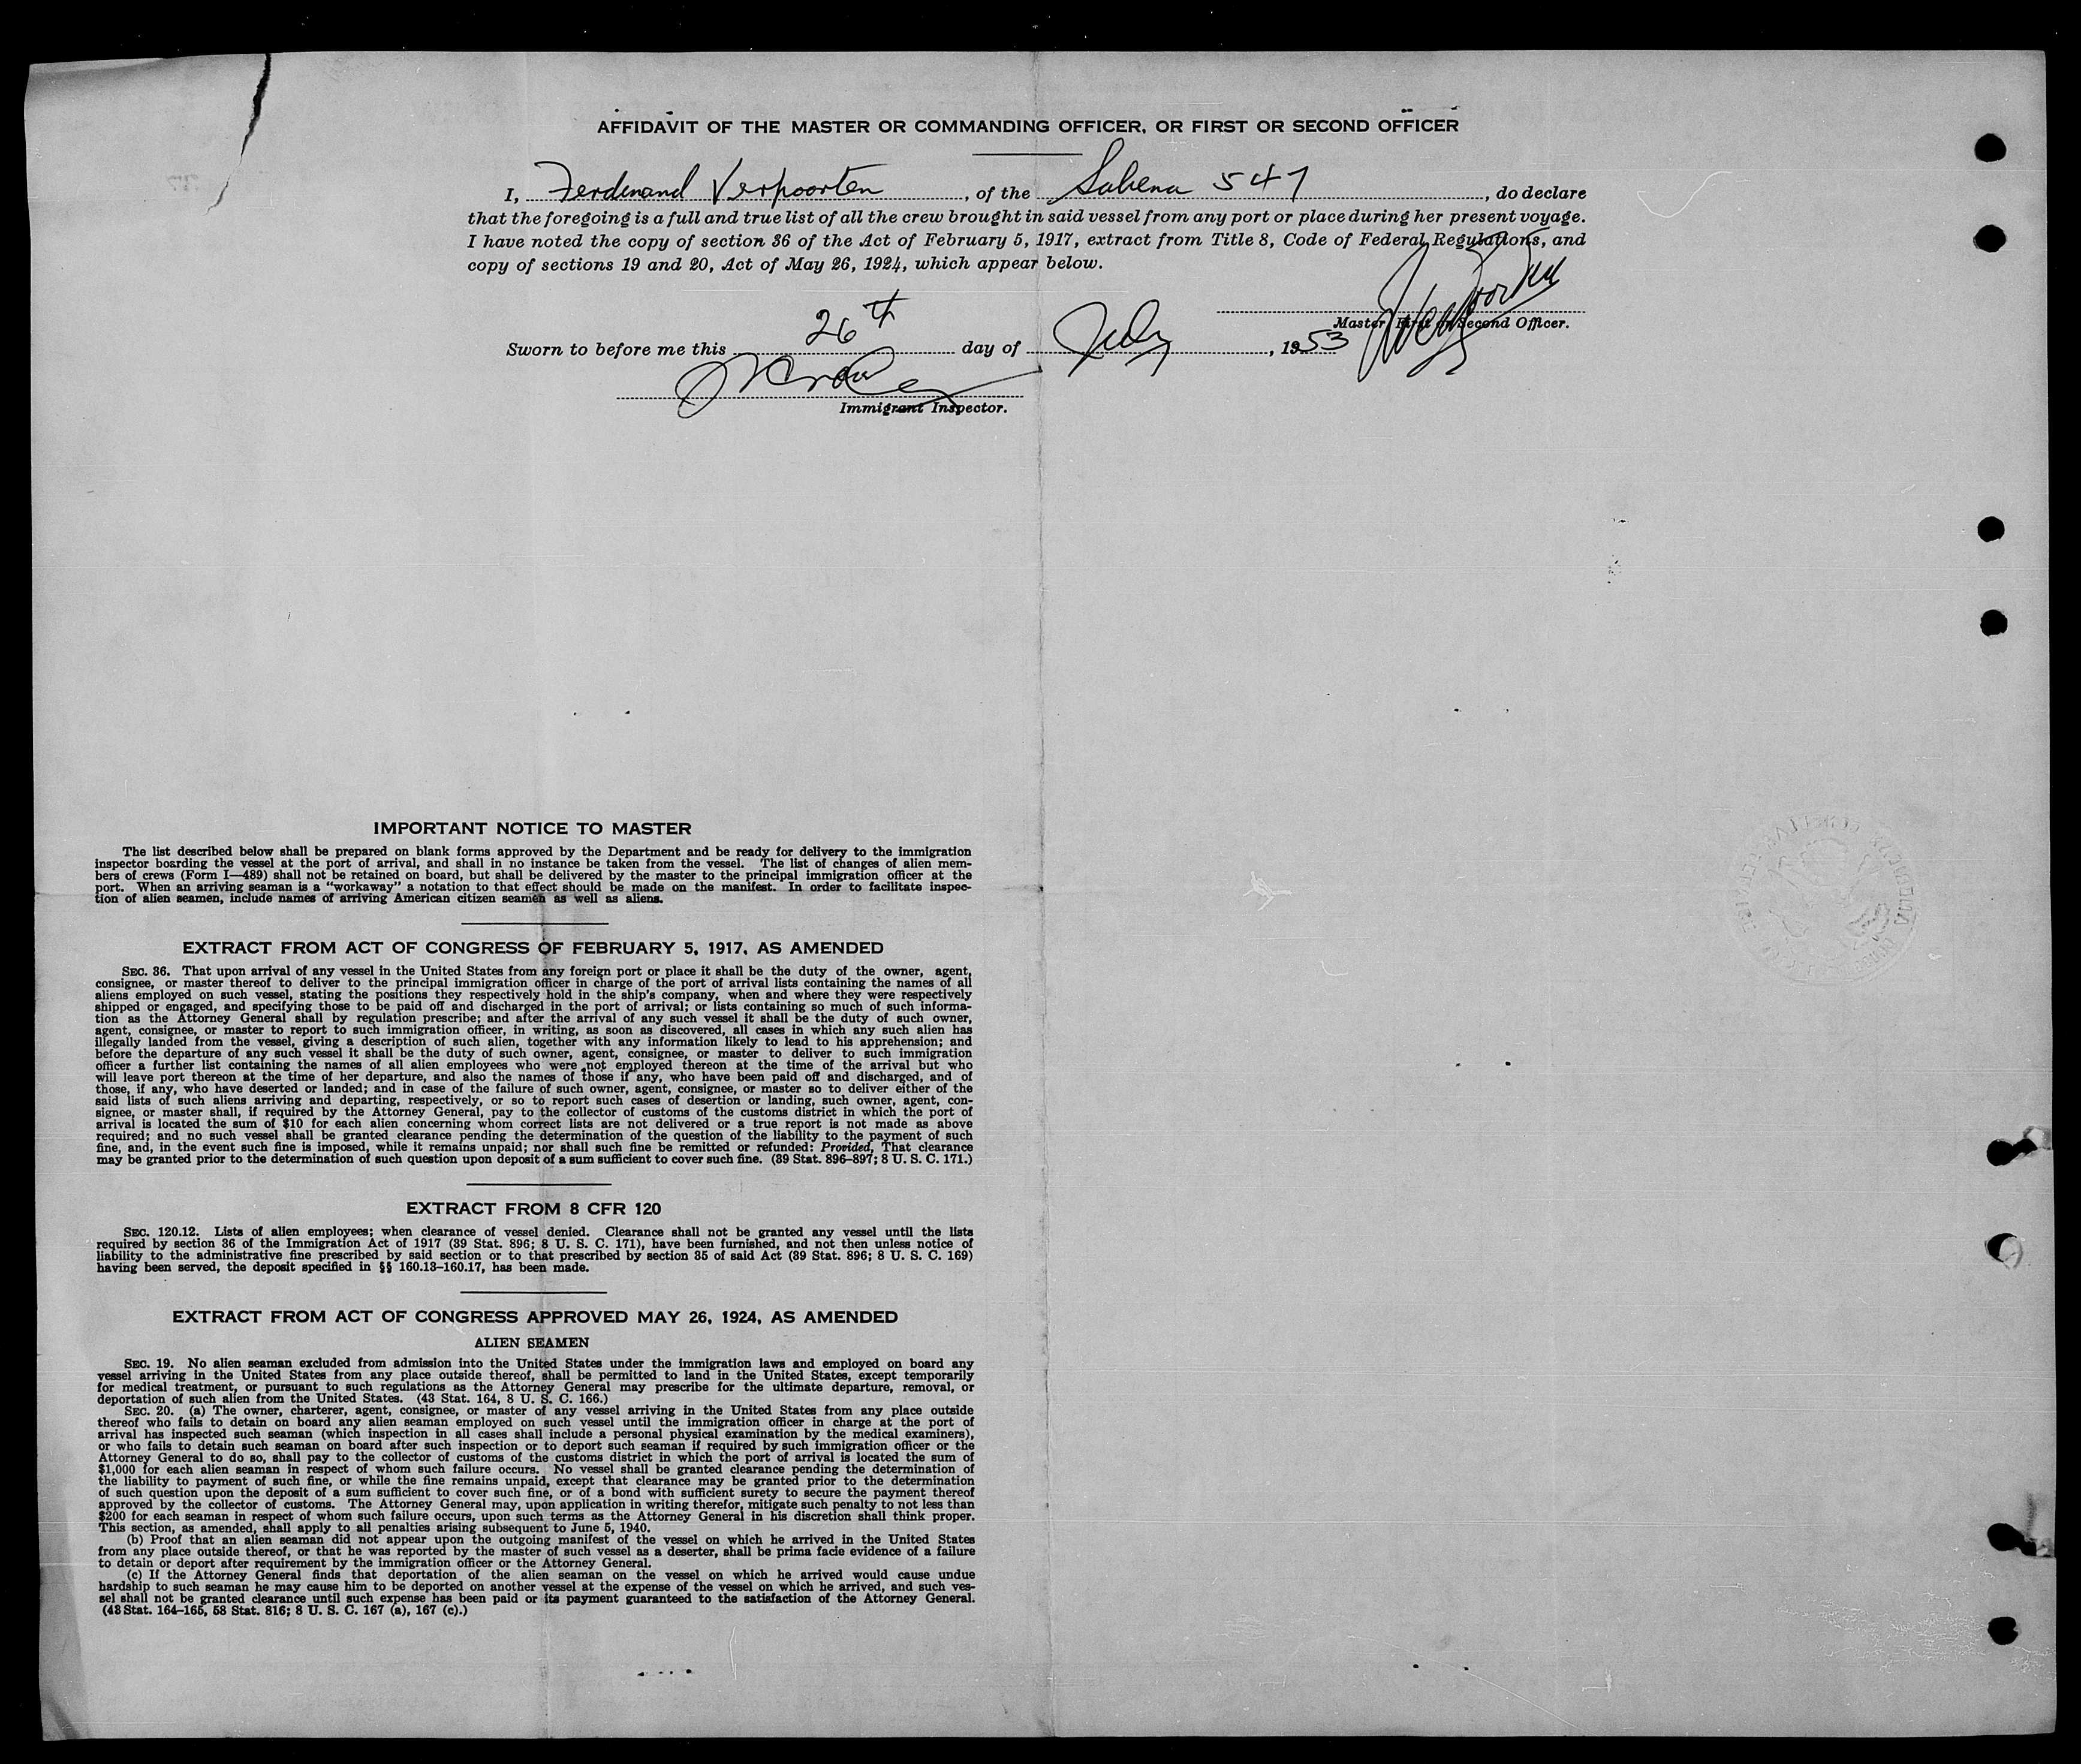 AFFIDAVIT OF THE MASTER OR COMMANDING OFFICER, OR FIRST OR SECOND OFFICER
I, Ferdinand Verpoorten, of the Sabena 547, do declare
that the foregoing is a full and true list of all the crew brought in said vessel from any port or place during her present voyage.
I have noted the copy of section 36 of the Act of February 5, 1917, extract from Title 8, Code of Federal Regulations, and
copy of sections 19 and 20, Act of May 26, 1924, which appear below.
Verpoorten
Master, First or Second Officer.
Sworn to before me this 26th day of July, 1953
Immigrant Inspector.
IMPORTANT NOTICE TO MASTER
The list described below shall be prepared on blank forms approved by the Department and be ready for delivery to the immigration
inspector boarding the vessel at the port of arrival, and shall in no instance be taken from the vessel. The list of changes of alien mem-
bers of crews (Form I—489) shall not be retained on board, but shall be delivered by the master to the principal immigration officer at the
port. When an arriving seaman is a "workaway" a notation to that effect should be made on the manifest. In order to facilitate inspec-
tion of alien seamen, include names of arriving American citizen seamen as well as aliens.
EXTRACT FROM ACT OF CONGRESS OF FEBRUARY 5, 1917, AS AMENDED
SEC. 36. That upon arrival of any vessel in the United States from any foreign port or place it shall be the duty of the owner, agent,
consignee, or master thereof to deliver to the principal immigration officer in charge of the port of arrival lists containing the names of all
aliens employed on such vessel, stating the positions they respectively hold in the ship's company, when and where they were respectively
shipped or engaged, and specifying those to be paid off and discharged in the port of arrival; or lists containing so much of such informa-
tion as the Attorney General shall by regulation prescribe; and after the arrival of any such vessel it shall be the duty of such owner,
agent, consignee, or master to report to such immigration officer, in writing, as soon as discovered, all cases in which any such alien has
illegally landed from the vessel, giving a description of such alien, together with any information likely to lead to his apprehension; and
before the departure of any such vessel it shall be the duty of such owner, agent, consignee, or master to deliver to such immigration
officer a further list containing the names of all alien employees who were not employed thereon at the time of the arrival but who
will leave port thereon at the time of her departure, and also the names of those if any, who have been paid off and discharged, and of
those, if any, who have deserted or landed; and in case of the failure of such owner, agent, consignee, or master so to deliver either of the
said lists of such aliens arriving and departing, respectively, or so to report such cases of desertion or landing, such owner, agent, con-
signee, or master shall, if required by the Attorney General, pay to the collector of customs of the customs district in which the port of
arrival is located the sum of $10 for each alien concerning whom correct lists are not delivered or a true report is not made as above
required; and no such vessel shall be granted clearance pending the determination of the question of the liability to the payment of such
fine, and, in the event such fine is imposed, while it remains unpaid; nor shall such fine be remitted or refunded: Provided, That clearance
may be granted prior to the determination of such question upon deposit of a sum sufficient to cover such fine. (39 Stat. 896–897; 8 U. S. C. 171.)
EXTRACT FROM 8 CFR 120
SEC. 120.12. Lists of alien employees; when clearance of vessel denied. Clearance shall not be granted any vessel until the lists
required by section 36 of the Immigration Act of 1917 (39 Stat. 896; 8 U. S. C. 171), have been furnished, and not then unless notice of
liability to the administrative fine prescribed by said section or to that prescribed by section 35 of said Act (39 Stat. 896; 8 U. S. C. 169)
having been served, the deposit specified in §§ 160.13–160.17, has been made.
EXTRACT FROM ACT OF CONGRESS APPROVED MAY 26, 1924, AS AMENDED
ALIEN SEAMEN
SEC. 19. No alien seaman excluded from admission into the United States under the immigration laws and employed on board any
vessel arriving in the United States from any place outside thereof, shall be permitted to land in the United States, except temporarily
for medical treatment, or pursuant to such regulations as the Attorney General may prescribe for the ultimate departure, removal, or
deportation of such alien from the United States. (43 Stat. 164, 8 U. S. C. 166.)
SEC. 20. (a) The owner, charterer, agent, consignee, or master of any vessel arriving in the United States from any place outside
thereof who fails to detain on board any alien seaman employed on such vessel until the immigration officer in charge at the port of
arrival has inspected such seaman (which inspection in all cases shall include a personal physical examination by the medical examiners),
or who fails to detain such seaman on board after such inspection or to deport such seaman if required by such immigration officer or the
Attorney General to do so, shall pay to the collector of customs of the customs district in which the port of arrival is located the sum of
$1,000 for each alien seaman in respect of whom such failure occurs. No vessel shall be granted clearance pending the determination of
the liability to payment of such fine, or while the fine remains unpaid, except that clearance may be granted prior to the determination
of such question upon the deposit of a sum sufficient to cover such fine, or of a bond with sufficient surety to secure the payment thereof
approved by the collector of customs. The Attorney General may, upon application in writing therefor, mitigate such penalty to not less than
$200 for each seaman in respect of whom such failure occurs, upon such terms as the Attorney General in his discretion shall think proper.
This section, as amended, shall apply to all penalties arising subsequent to June 5, 1940.
(b) Proof that an alien seaman did not appear upon the outgoing manifest of the vessel on which he arrived in the United States
from any place outside thereof, or that he was reported by the master of such vessel as a deserter, shall be prima facie evidence of a failure
to detain or deport after requirement by the immigration officer or the Attorney General.
(c) If the Attorney General finds that deportation of the alien seaman on the vessel on which he arrived would cause undue
hardship to such seaman he may cause him to be deported on another vessel at the expense of the vessel on which he arrived, and such ves-
sel shall not be granted clearance until such expense has been paid or its payment guaranteed to the satisfaction of the Attorney General.
(43 Stat. 164–165, 58 Stat. 816; 8 U. S. C. 167 (a), 167 (c).)